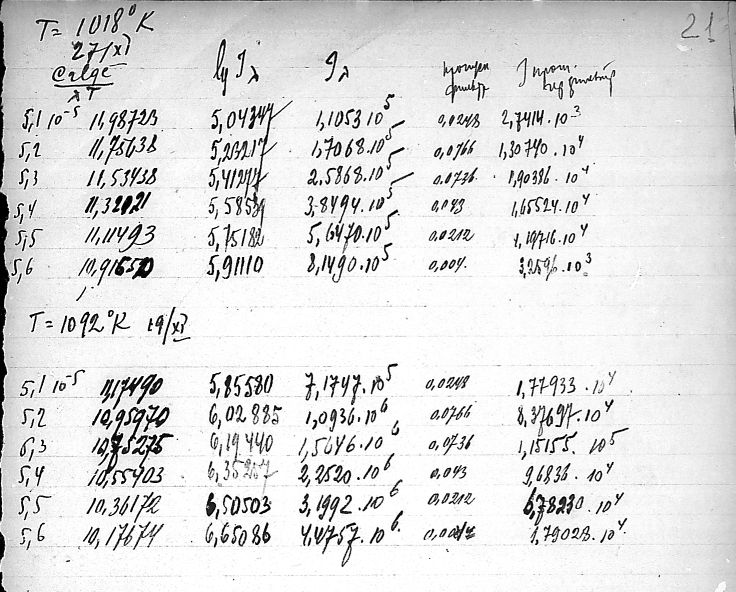 21
T = 1018° K
27/XI
C₂ lg e / λT lg Iλ Iλ пропускн фильтр I прош. через фильтр
5,1 10⁻⁵ 11,98723 5,04347 1,1053·10⁵ 0,0248 2,7414·10⁻³
5,2 11,75638 5,23217 1,7068·10⁵ 0,0766 1,30740·10⁴
5,3 11,53438 5,41277 2,5868·10⁵ 0,0736 1,90386·10⁴
5,4 11,32021 5,58539 3,8494·10⁵ 0,043 1,65524·10⁴
5,5 11,11493 5,75182 5,6470·10⁵ 0,0212 1,19716·10⁴
5,6 10,91650 5,91110 8,1490·10⁵ 0,004 3,2596·10³
T = 1092°K 19/XI
5,1 10⁻⁵ 11,17490 5,85580 7,1747·10⁵ 0,0248 1,77933·10⁴
5,2 10,95970 6,02885 1,0936·10⁶ 0,0766 8,37697·10⁴
5,3 10,75275 6,19440 1,5646·10⁶ 0,0736 1,15155·10⁵
5,4 10,55403 6,35257 2,2520·10⁶ 0,043 9,6836·10⁴
5,5 10,36172 6,50503 3,1992·10⁶ 0,0212 6,78230·10⁴
5,6 10,17674 6,65086 4,4757·10⁶ 1,79028·10⁴